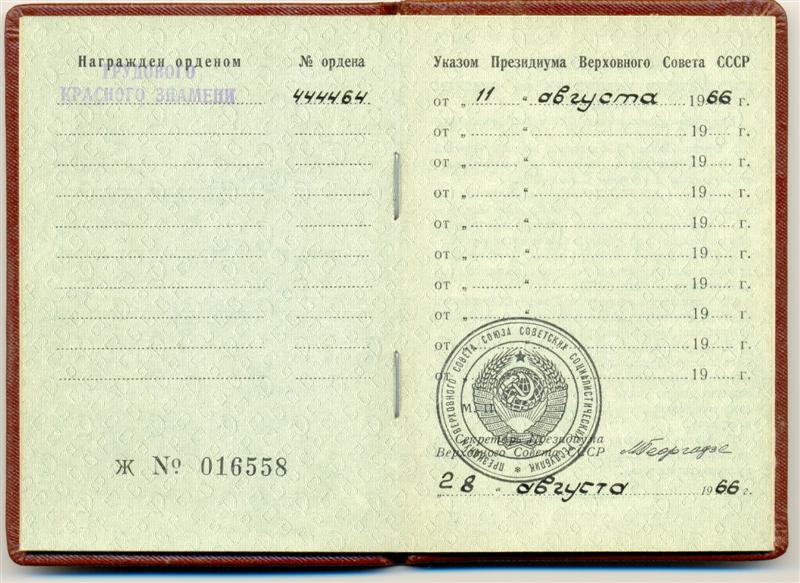 Награжден орденом № ордена
ТРУДОВОГО
КРАСНОГО ЗНАМЕНИ 444464
Ж № 016558
Указом Президиума Верховного Совета СССР
от „ 11 “ августа 1966 г.
от „ “ 19 г.
от „ “ 19 г.
от „ “ 19 г.
от „ “ 19 г.
от „ “ 19 г.
от „ “ 19 г.
от „ “ 19 г.
от „ “ 19 г.
от „ 19 г.
ПРЕЗИДИУМ ВЕРХОВНОГО СОВЕТА СОЮЗА СОВЕТСКИХ СОЦИАЛИСТИЧЕСКИХ РЕСПУБЛИК *
М. П.
Секретарь Президиума
Верховного Совета СССР МГеоргадзе
„28“ августа 1966 г.